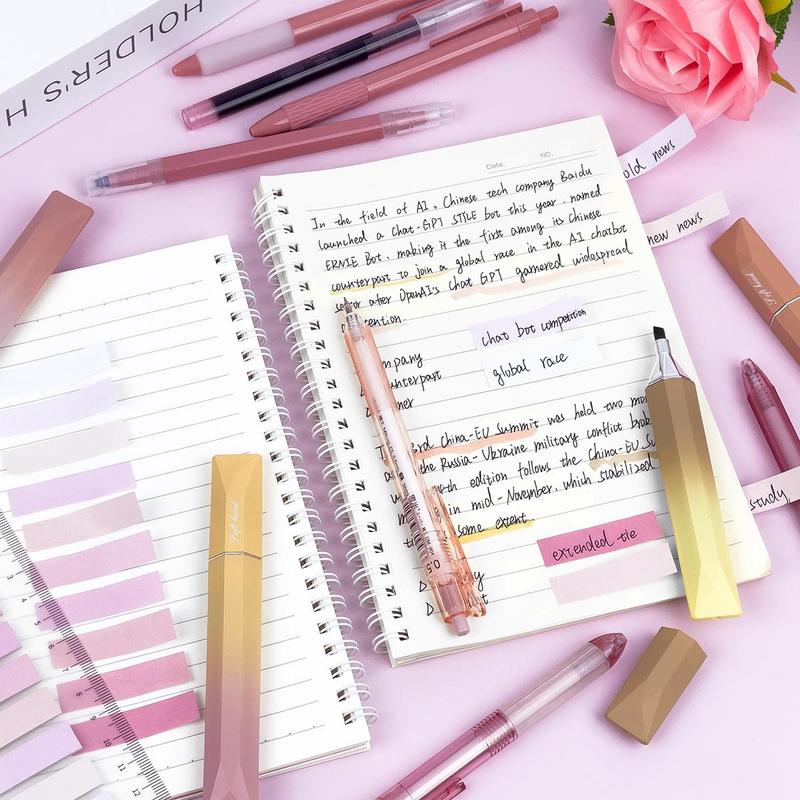 HOLDER'S H
Date. NO.
In the field of AI, Chinese tech company Baidu
launched a Chat-GPT STYLE bot this year, named
ERNIE Bot, making it the first among its Chinese
counterpart to join a global race in the AI chatbot
sector after OpenAI's chat GPT garnered widespread
tention.
chat bot competition
mpany
global race
unterpart
ner
3rd China-EU Summit was held two mon
the Russia-Ukraine military conflict brok
th edition follows the China-EU Su
in mid-November, which stabilized
some extent.
extended tie
old news
new news
study,
Soft hand
Soft hand
0.5
3
4
5
6
7
8
9
10
11
12